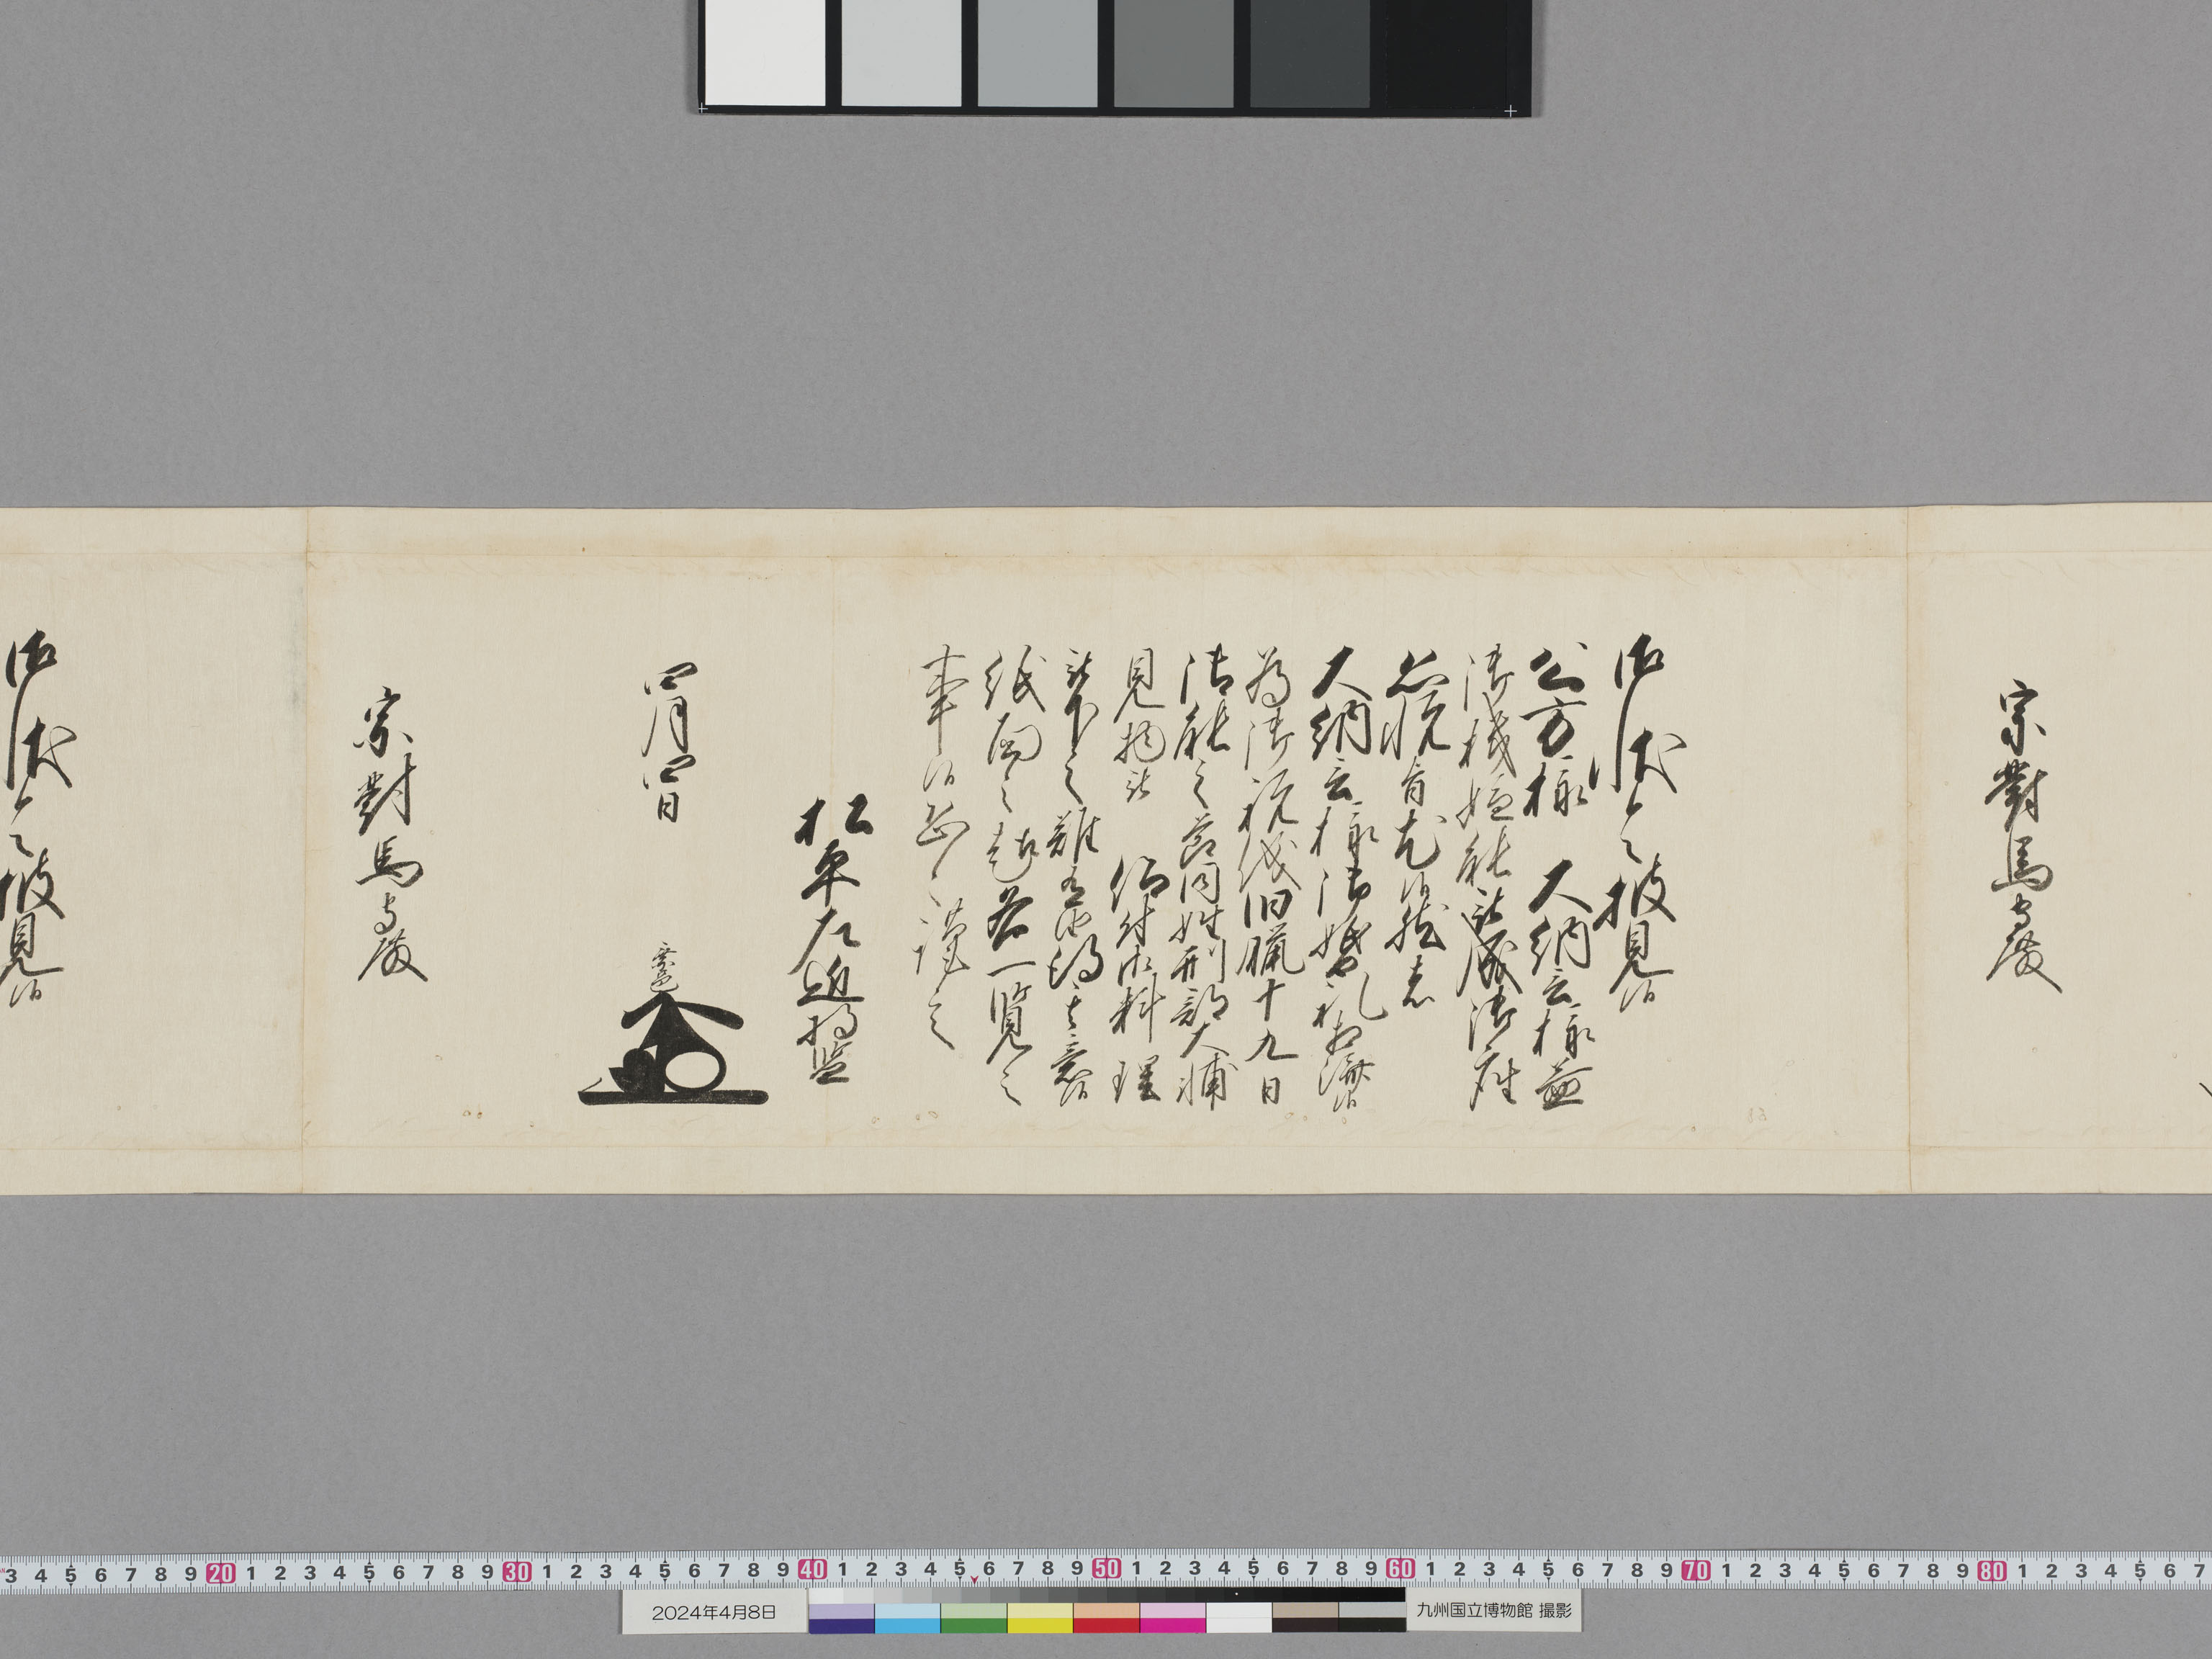 宗對馬守殿
御状令披見候
公方様 大納言様益
御機嫌能被成御座
恐悦旨尤候然者
大納言様御婚礼相済候
為御祝儀旧臘十九日
御能之節同姓刑部大輔
見物被 仰付御料理
被下之難有
紙面之趣各一覧之
事候恐々謹言
松平左近将監
四月四日
宗對馬守殿
御状令披見候
3 4 5 6 7 8 9 20 1 2 3 4 5 6 7 8 9 30 1 2 3 4 5 6 7 8 9 40 1 2 3 4 5 6 7 8 9 50 1 2 3 4 5 6 7 8 9 60 1 2 3 4 5 6 7 8 9 70 1 2 3 4 5 6 7 8 9 80 1 2 3 4 5 6 7
2024年4月8日
九州国立博物館 撮影